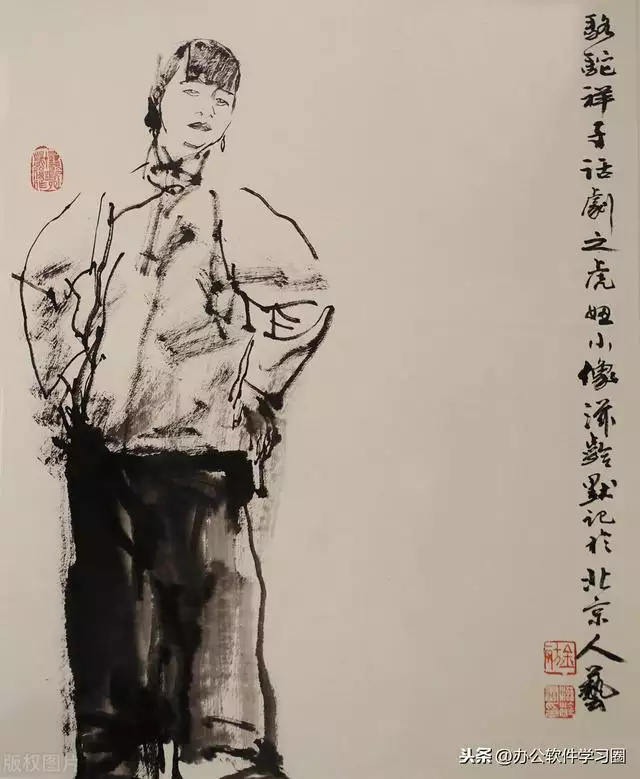 駱駝祥子话劇之虎妞小像齡默记於北京人藝
版权图片
头条 @办公软件学习圈